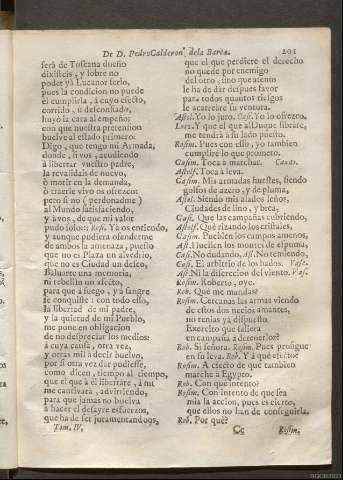 De D. Pedro Calderon dela Barca. 201
serà de Toscana dueño
dixisteis, y sobre no
poder yà Lucanor serlo,
pues la condicion no puede
èl cumplirla, à cuyo efecto,
corrido, ù desconfiado,
huyò la cara al empeño,
con que nuestra pretension
buelve al estado primero:
Digo, que tengo mi Armada,
donde, si vos, acudiendo
à libertar vuestro padre,
la revalidais de nuevo,
ò morir en la demanda,
ò traerle vivo os ofrezco
pero si no (perdonadme)
al Mundo satisfaciendo,
y à vos, de que mi valor
pudo solo: Rosi. Yà os entiendo,
y aunque pudiera ofenderme
de ambos la amenaza, puesto
que no es Plaza un alvedrio,
que no es Ciudad un dicho,
Baluarte una memoria,
ni rebellin un afecto,
para que à fuego, y à sangre
se conquiste: con todo esso,
la libertad de mi padre,
y la quietud de mi Pueblo,
me pone en obligacion
de no despreciar los medios:
à cuya causa, otra vez,
y otras mil à decir buelvo,
por si otra vez dar pudiesse,
como dicen, tiempo al tiempo,
que el que à èl libertàre, à mi
me cautivarà, advirtiendo,
para que jamas no buelva
à hacer el desayre esfuerzos,
que ha de ser juramentandoos,
Tom. IV.
que el que perdiere el derecho
no quede por enemigo
del otro, sino que atento
le ha de dar despues favor
para todos quantos riesgos
le acarreàre su ventura.
Astol. Yo lo juro. Casi. Yo lo ofrezco.
Los 2. Y que el que al Duque libràre,
me tendrà à su lado puesto.
Rosim. Pues con esso, yo tambien
cumplirè lo que prometo.
Casim. Toca à marchar. Caxas.
Astolf. Toca à leva.
Casim. Mis armadas huestes, siendo
golfos de azero, y de pluma,
Astol. Siendo mis alados leños,
Ciudades de lino, y brea,
Casi. Que las campañas cubriendo,
Astolf. Que rizando los cristales,
Casim. Pueblen los campos amenos,
Ast. Huellen los montes de espuma,
Casi. No dudando, Ast. No temiendo,
Casi. El arbitrio de los hados. Vase.
Ast. Ni la discrecion del viento. Vas.
Rosim. Roberto, oye.
Rob. Què me mandas?
Rosim. Cercanas las armas viendo
de estos dos necios amantes,
no tenias yà dispuesto
Exercito que saliera
en campaña à detenerlos?
Rob. Sì señora. Rosim. Pues prosigue
en su leva. Rob. Y à què efecto?
Rosim. A efecto de que tambien
marche à Egypto.
Rob. Con què intento?
Rosim. Con intento de que sea
mia la accion, pues es cierto,
que ellos no han de conseguirla.
Rob. Por què?
Cc Rosim.